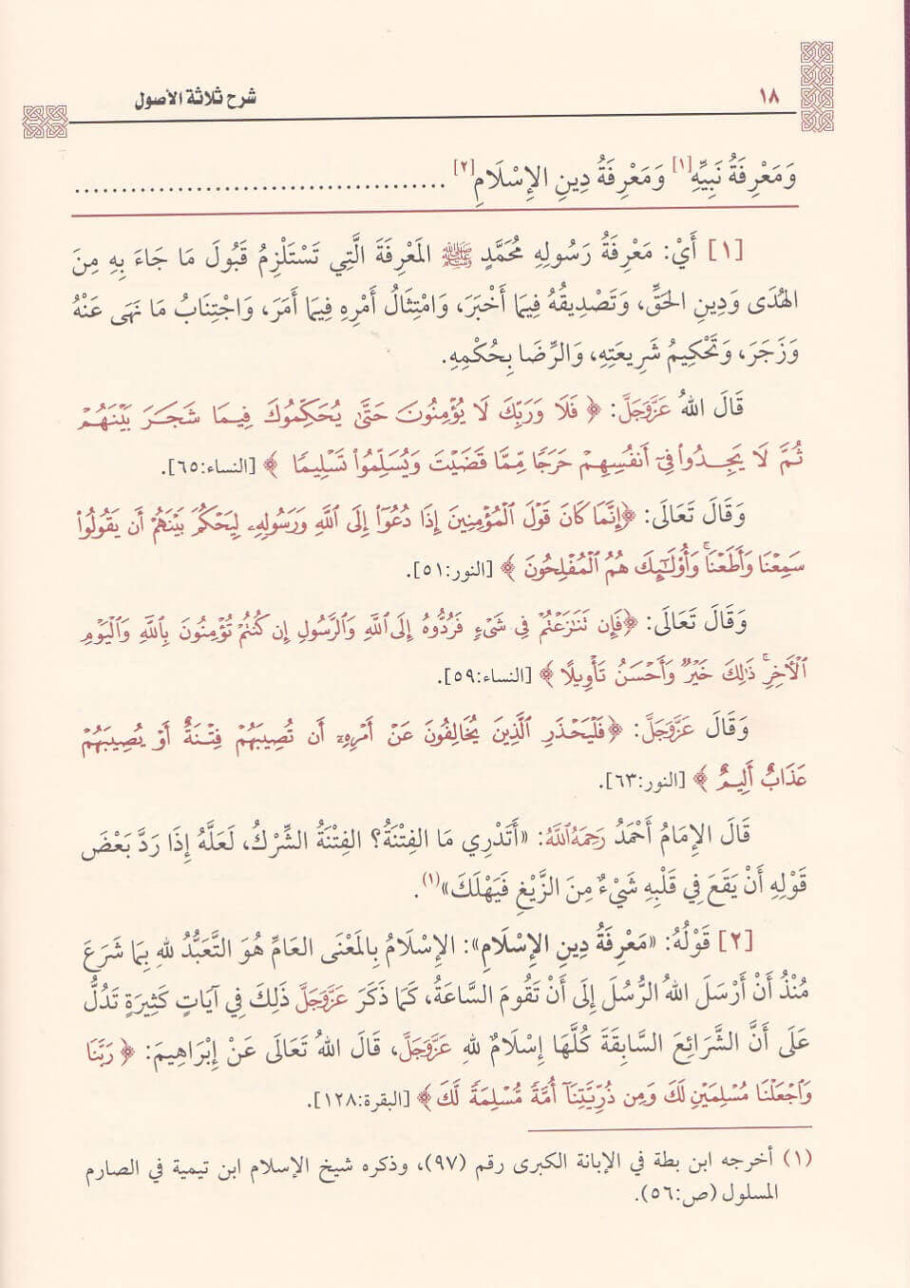 ١٨ شرح ثلاثة الأصول
وَمَعْرِفَةُ نَبِيِّهِ[١] وَمَعْرِفَةُ دِينِ الإِسْلَامِ[٢] ........................................
[١] أَيْ: مَعْرِفَةُ رَسُولِهِ مُحَمَّدٍ ﷺ المَعْرِفَةَ الَّتِي تَسْتَلْزِمُ قَبُولَ مَا جَاءَ بِهِ مِنَ
الهُدَى وَدِينِ الحَقِّ، وَتَصْدِيقُهُ فِيمَا أَخْبَرَ، وَامْتِثَالُ أَمْرِهِ فِيمَا أَمَرَ، وَاجْتِنَابُ مَا نَهَى عَنْهُ
وَزَجَرَ، وَتَحْكِيمُ شَرِيعَتِهِ، وَالرِّضَا بِحُكْمِهِ.
قَالَ اللهُ عَزَّوَجَلَّ: ﴿ فَلَا وَرَبِّكَ لَا يُؤْمِنُونَ حَتَّىٰ يُحَكِّمُوكَ فِيمَا شَجَرَ بَيْنَهُمْ
ثُمَّ لَا يَجِدُوا۟ فِىٓ أَنفُسِهِمْ حَرَجًا مِّمَّا قَضَيْتَ وَيُسَلِّمُوا۟ تَسْلِيمًا ﴾ [النساء:٦٥].
وَقَالَ تَعَالَى: ﴿إِنَّمَا كَانَ قَوْلَ ٱلْمُؤْمِنِينَ إِذَا دُعُوٓا۟ إِلَى ٱللَّهِ وَرَسُولِهِۦ لِيَحْكُمَ بَيْنَهُمْ أَن يَقُولُوا۟
سَمِعْنَا وَأَطَعْنَا ۚ وَأُو۟لَـٰٓئِكَ هُمُ ٱلْمُفْلِحُونَ ﴾ [النور:٥١].
وَقَالَ تَعَالَى: ﴿فَإِن تَنَـٰزَعْتُمْ فِى شَىْءٍ فَرُدُّوهُ إِلَى ٱللَّهِ وَٱلرَّسُولِ إِن كُنتُمْ تُؤْمِنُونَ بِٱللَّهِ وَٱلْيَوْمِ
ٱلْـَٔاخِرِ ۚ ذَٰلِكَ خَيْرٌ وَأَحْسَنُ تَأْوِيلًا ﴾ [النساء:٥٩].
وَقَالَ عَزَّوَجَلَّ: ﴿فَلْيَحْذَرِ ٱلَّذِينَ يُخَالِفُونَ عَنْ أَمْرِهِۦٓ أَن تُصِيبَهُمْ فِتْنَةٌ أَوْ يُصِيبَهُمْ
عَذَابٌ أَلِيمٌ ﴾ [النور:٦٣].
قَالَ الإِمَامُ أَحْمَدُ رَحِمَهُ اللَّهُ: «أَتَدْرِي مَا الفِتْنَةُ؟ الفِتْنَةُ الشِّرْكُ، لَعَلَّهُ إِذَا رَدَّ بَعْضَ
قَوْلِهِ أَنْ يَقَعَ فِي قَلْبِهِ شَيْءٌ مِنَ الزَّيْغِ فَيَهْلَكَ»(١).
[٢] قَوْلُهُ: «مَعْرِفَةُ دِينِ الإِسْلَامِ»: الإِسْلَامُ بِالمَعْنَى العَامِّ هُوَ التَّعَبُّدُ للهِ بِمَا شَرَعَ
مُنْذُ أَنْ أَرْسَلَ اللهُ الرُّسُلَ إِلَى أَنْ تَقُومَ السَّاعَةُ، كَمَا ذَكَرَ عَزَّوَجَلَّ ذَلِكَ فِي آيَاتٍ كَثِيرَةٍ تَدُلُّ
عَلَى أَنَّ الشَّرَائِعَ السَّابِقَةَ كُلَّهَا إِسْلَامٌ للهِ عَزَّوَجَلَّ، قَالَ اللهُ تَعَالَى عَنْ إِبْرَاهِيمَ: ﴿ رَبَّنَا
وَٱجْعَلْنَا مُسْلِمَيْنِ لَكَ وَمِن ذُرِّيَّتِنَآ أُمَّةً مُّسْلِمَةً لَّكَ ﴾ [البقرة:١٢٨].
(١) أخرجه ابن بطة في الإبانة الكبرى رقم (٩٧)، وذكره شيخ الإسلام ابن تيمية في الصارم
المسلول (ص:٥٦).